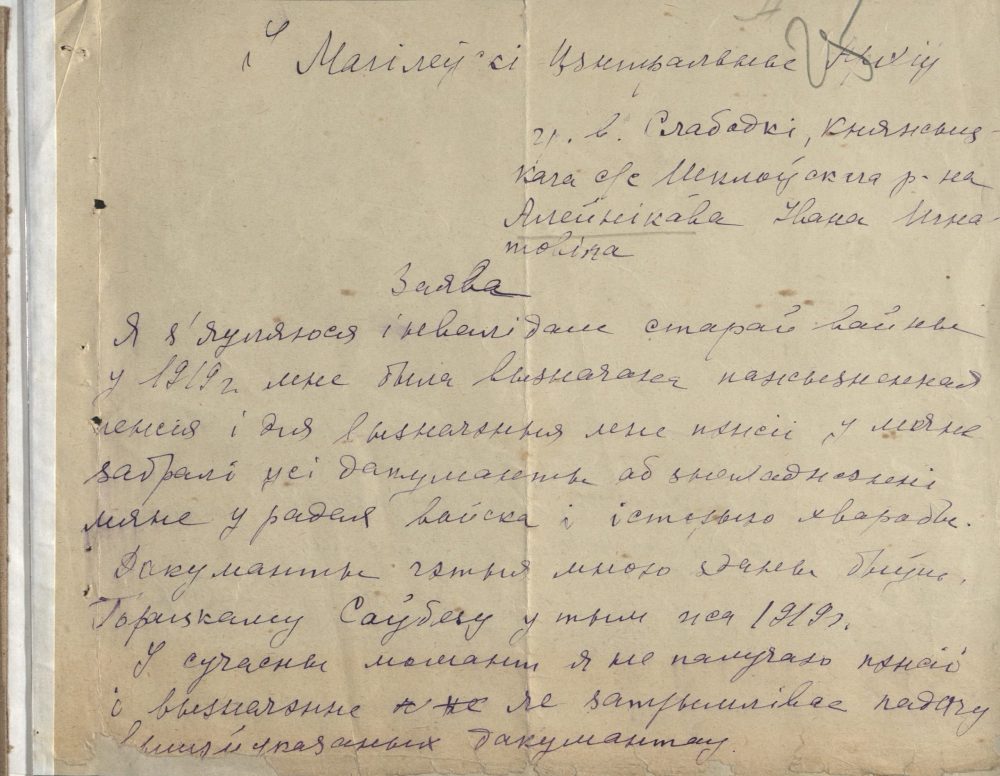 У Магілеўскі Цэнтральны Архіў
гр. в. Слабодкі, Княжыц-
кага с/с Шклоўскага р-на
Алейнікава Івана Ігна-
товіча
Заява
Я з'яуляюся інвалідам старай вайны
у 1919 г. мне была вызначана пажызненная
пенсія і для вызначэння мне пенсіі у мяне
забралі усі дакуманты аб знаходжэнні
мяне у радах войска і історыю хваробы.
Дакуманты гэтыя мною зданы быўш.
Горыцкаму Саўбезу у тым жа 1919 г.
У сучасны момант я не палучаю пенсіі
і вызначэнне не затрымлівае падачу
вышэйуказаных дакумантау.